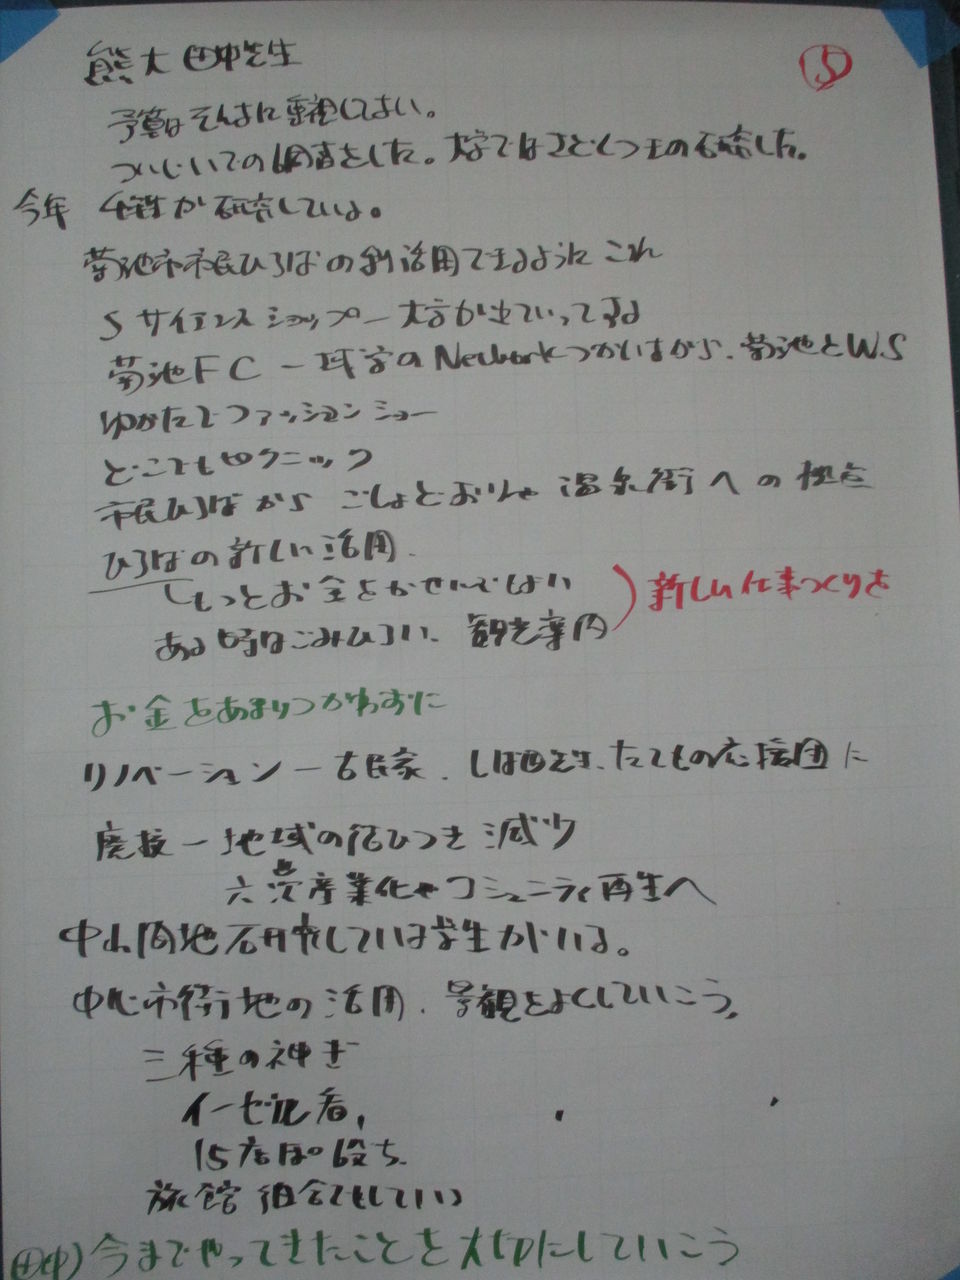 熊大 田中先生
5
予算はそんなに重視してない。
ついじいての調査をした。大学では した。
今年 が研究している。
菊池市市民ひろばの利活用できるように これ
S サイエンスショップー大学が出ていってする
菊池FC ー 大学の Network つかいながら、菊池とW.S
ゆかたでファッションショー
どこでもピクニック
市民ひろばから ごしょどおりや 温泉街への拠点
ひろばの新しい活用.
もっとお金をかせいでほしい
新しい仕事づくりを
ある時はごみひろい、観光案内
お金をあまりつかわずに
リノベーションー古民家. たてもの応援団に
廃校ー地域の結びつき減少
六次産業化やコミュニティ再生へ
中山間地研究している学生がいる。
中心市街地の活用. 景観をよくしていこう。
三種の神ぎ
イーゼル看,
15店ほど 役立.
旅館組合でもしてい
田中) 今までやってきたことを大切にしていこう